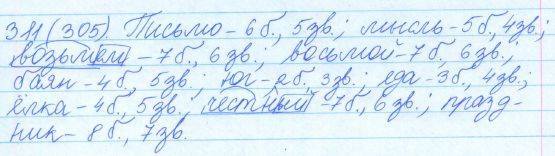 311 (305). Письмо - 6 б., 5 зв.; мысль - 5 б., 4 зв.;
возьмем - 7 б., 6 зв.; восьмой - 7 б., 6 зв.;
баян - 4 б., 5 зв.; юг - 2 б. 3 зв.; еда - 3 б., 4 зв.;
ёлка - 4 б., 5 зв.; честный - 7 б., 6 зв.; празд-
ник - 8 б., 7 зв.